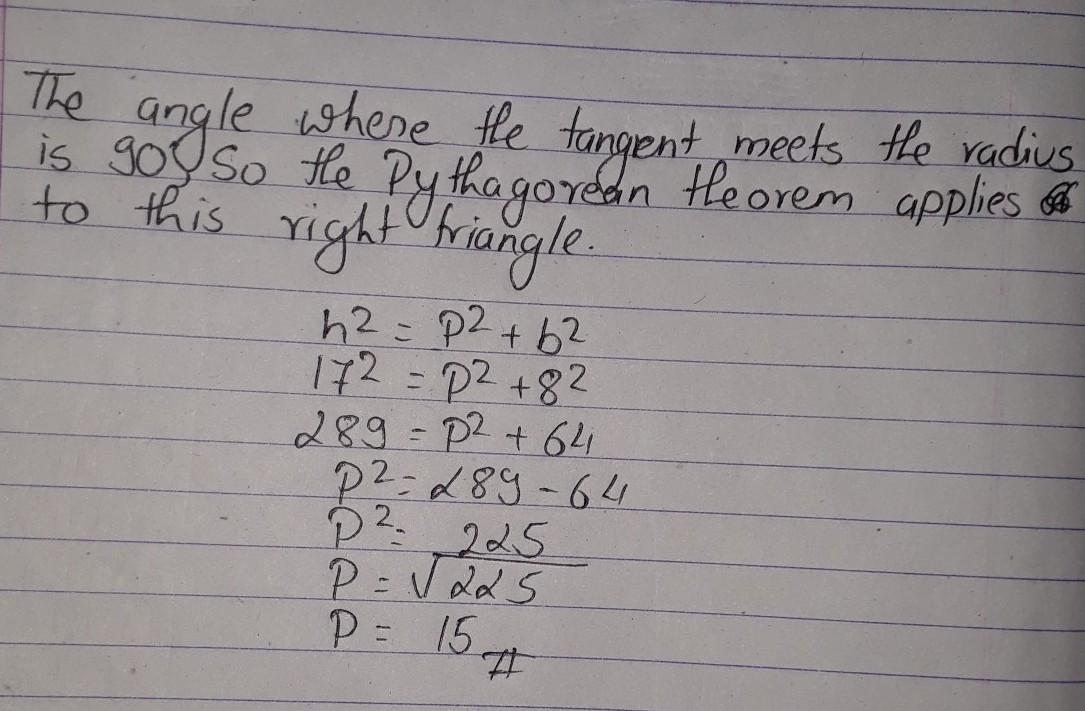 The angle where the tangent meets the radius
is 90° So the Pythagorean theorem applies
to this right triangle.
h2 = p2 + b2
172 = p2 + 82
289 = p2 + 64
p2 = 289 - 64
p2 = 225
p = √225
p = 15